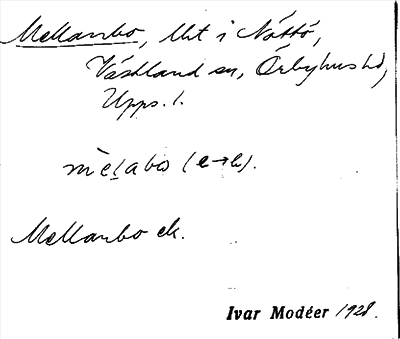 Mellanbo, lht i Nöttö,
Västland sn, Örbyhus hd,
Upps. l.
mèḷabω (e→ἐ).
Mellanbo ek.
Ivar Modéer 1928.